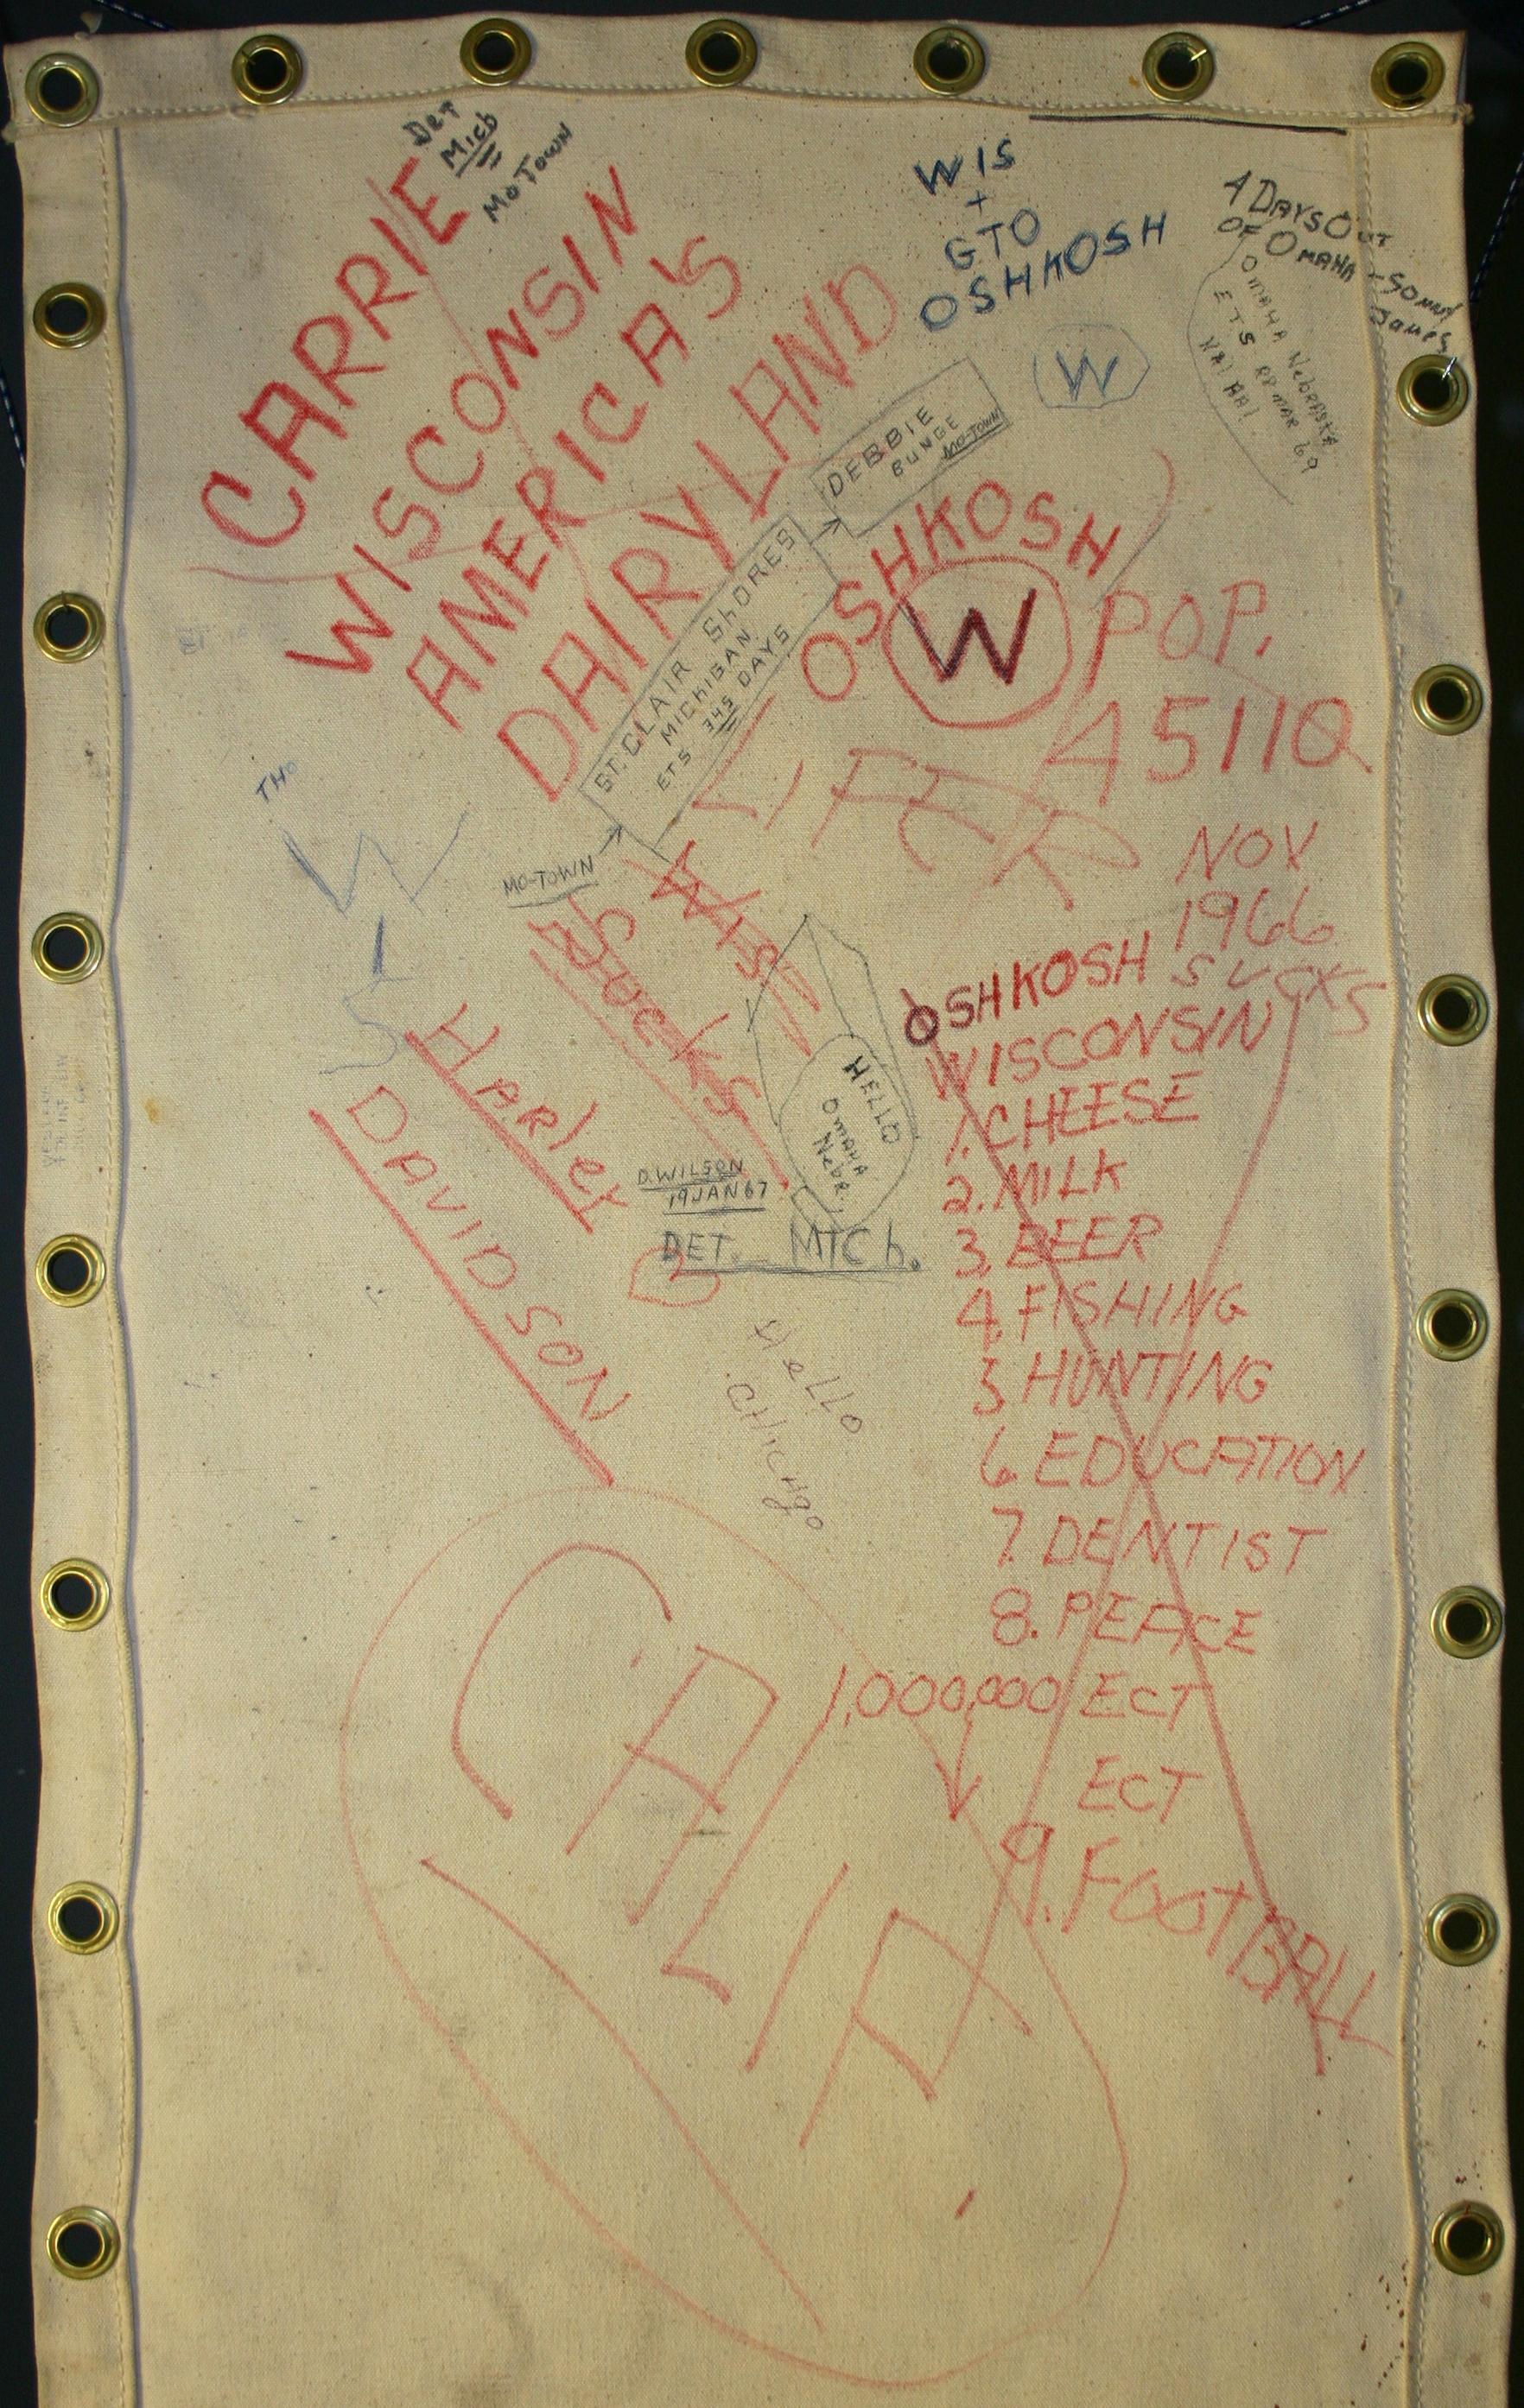 DET
Mich
MoTown
CARRIE
WISCONSIN
AMERICA'S
DAIRYLAND
WIS
+
GTO
OSHKOSH
W
4 DAYS OUT
OF OMAHA - SONNY
James
OMAHA NebRASKA
ETS MAR 69
HA! HA!
DEBBIE
BUNGE
MO-TOWN
ST. CLAIR ShORES
MICHIGAN
ETS 345 DAYS
MO-TOWN
OSHKOSH
W
POP.
45110
LIFER
THO
W
WIS
SUCKS
NOV
1966
OSHKOSH SUCKS
WISCONSIN
1. CHEESE
2. MILK
3. BEER
4. FISHING
5 HUNTING
6. EDUCATION
7. DENTIST
8. PEACE
1,000,000 ECT
ECT
9. FOOTBALL
HARleY
DAVIDSON
HELLO
OMAHA
Nebr.
D. WILSON
19 JAN 67
DET. MICh.
HeLLO
CHICAgo
CALIF